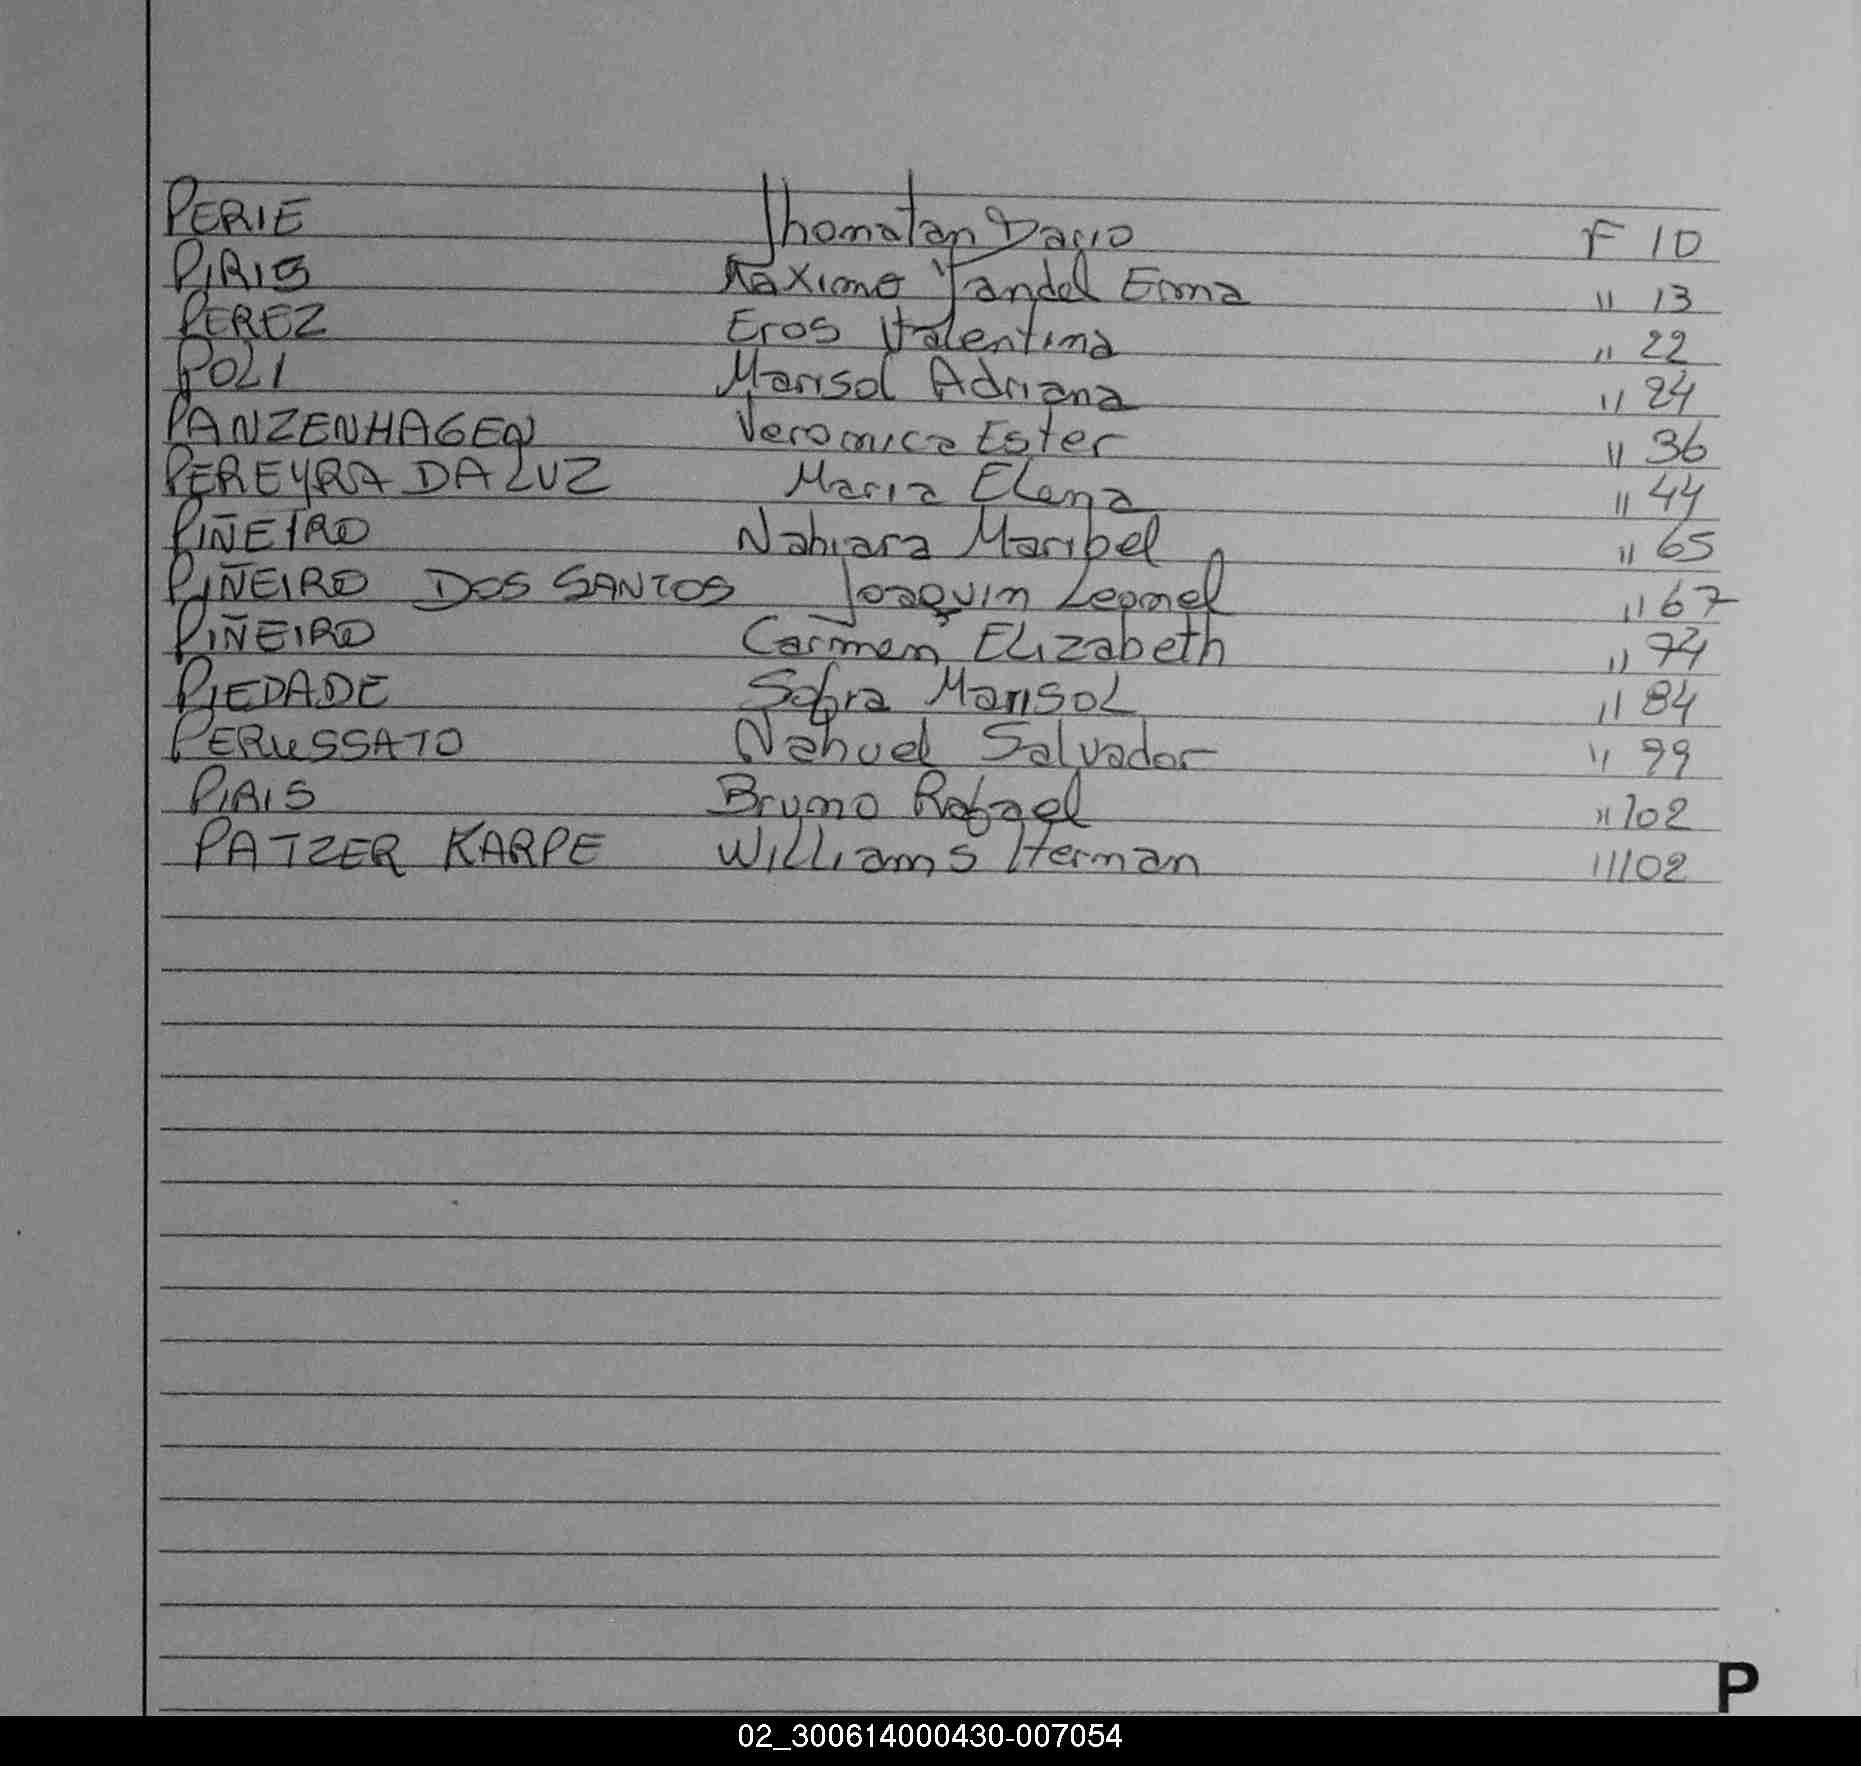 PERIE Jhonatan Dario F 10
PIRIS Maximo Yandel Ema " 13
PEREZ Eros Valentina " 22
POLI Marisol Adriana " 24
PANZENHAGEN Veronica Ester " 36
PEREYRA DA LUZ Maria Elena " 44
PIÑEIRO Nahiara Maribel " 65
PIÑEIRO DOS SANTOS Joaquin Leonel " 67
PIÑEIRO Carmen Elizabeth " 74
PIEDADE Sofira Marisol " 84
PERUSSATO Nahuel Salvador " 99
PIRIS Bruno Rafael " 102
PATZER KARPE Williams Herman " 102
P
02_300614000430-007054